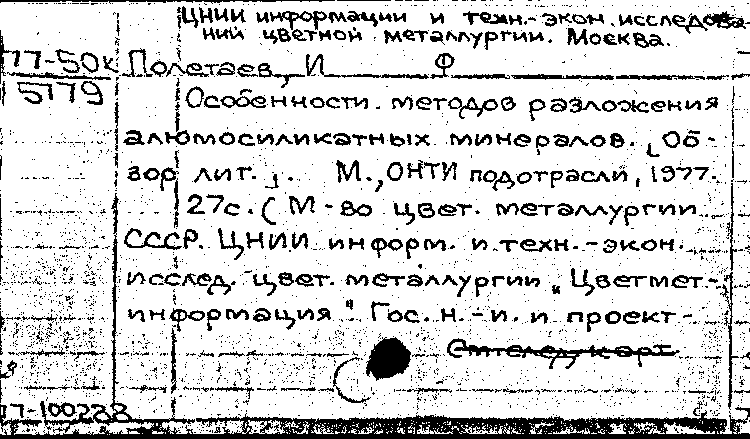 ЦНИИ информации и техн.-экон. исследова-
ний цветной металлургии. Москва.
77-50к Полетаев, И Ф
5179
Особенности методов разложения
алюмосиликатных минералов. [Об-
зор лит.]. М., ОНТИ подотрасли, 1977.
27с. (М-во цвет. металлургии
СССР. ЦНИИ информ. и техн.-экон.
исслед. цвет. металлургии „Цветмет-
информация". Гос. н.-и. и проект-
См. след. карт
77-100288